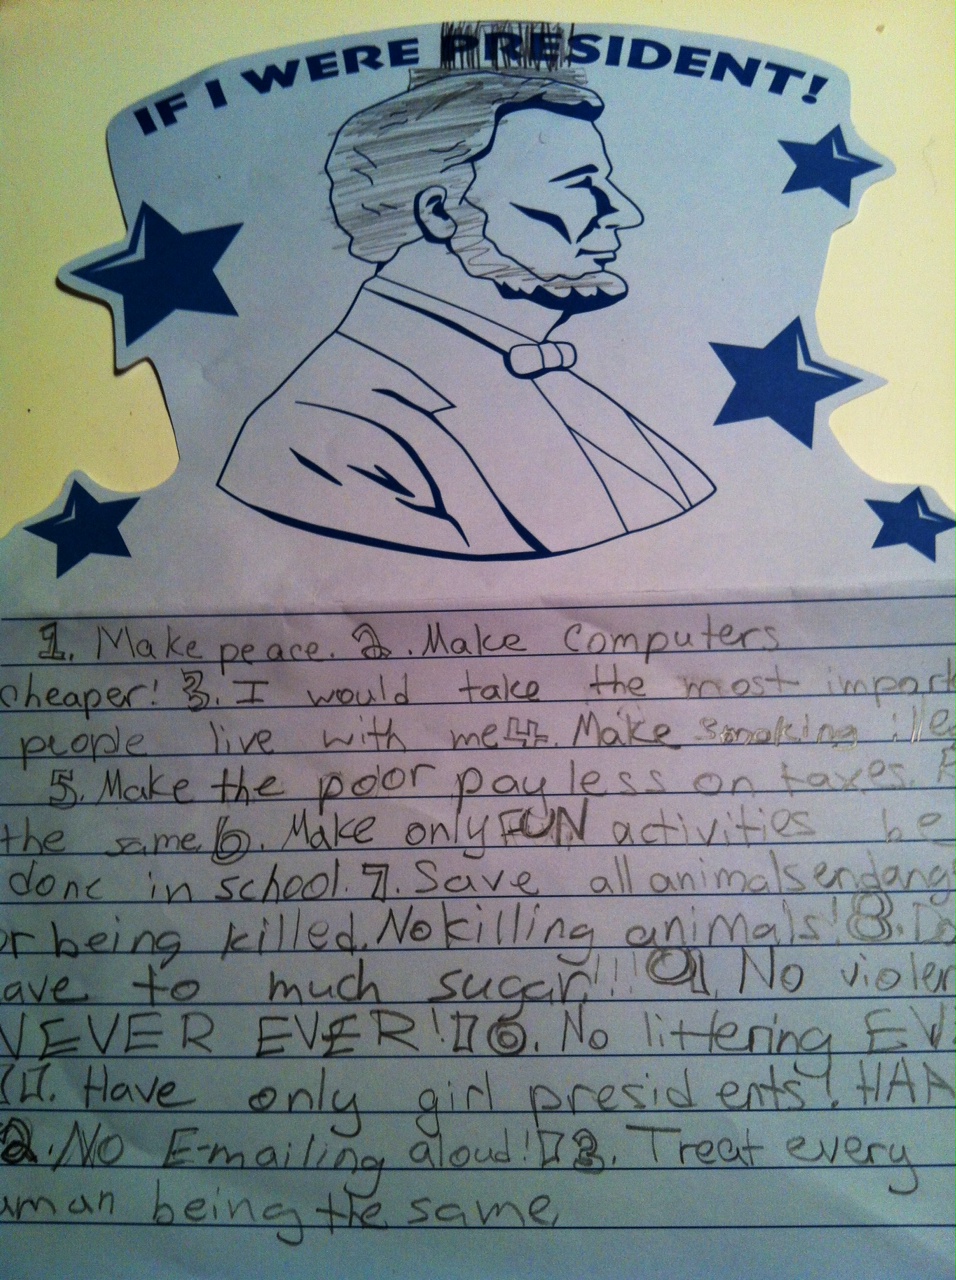 IF I WERE PRESIDENT!
1. Make peace. 2. Make Computers
cheaper! 3. I would take the most
people live with me 4. Make smoking
5. Make the poor pay less on taxes.
the same 6. Make only FUN activities be
done in school. 7. Save all animals
or being killed. No killing animals! 8.
to much sugar!!! 9. No
EVER EVER! 10. No littering
11. Have only girl presidents!
No E-mailing aloud! 13. Treat every
being the same.